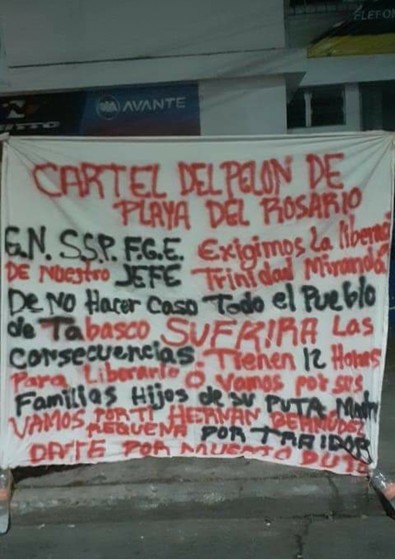 AVANTE
CARTEL DEL PELON DE
PLAYA DEL ROSARIO
G.N. S.S.P. F.G.E. Exigimos La liberaci
DE NUESTRO JEFE Trinidad Miranda
De No Hacer Caso Todo el Pueblo
de Tabasco SUFRIRA Las
consecuencias. Tienen 12 Horas
Para Liberarlo O Vamos por sus
Familias Hijos de su PUTA Madre
VAMOS POR TI HERNAN BERMUDEZ
REQUENA POR TRAIDOR
DATE POR MUERTO PUTO